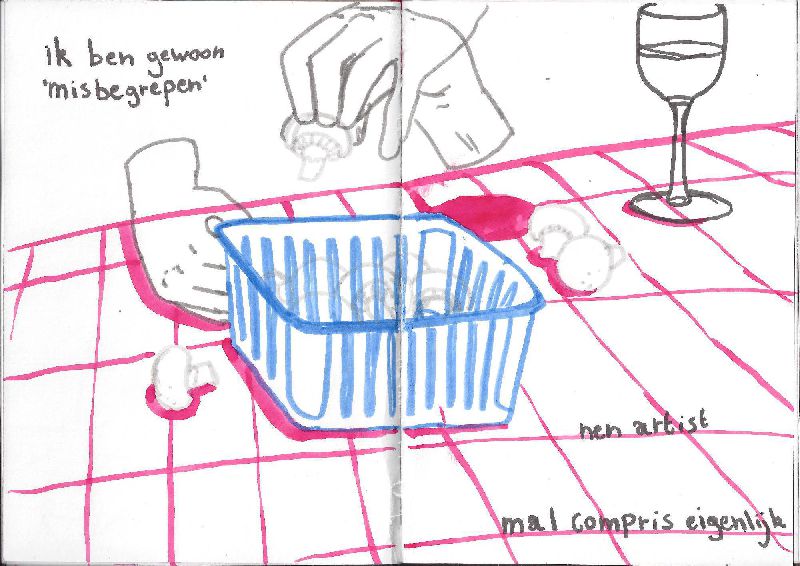 ik ben gewoon
'misbegrepen'
nen artist
mal compris eigenlijk